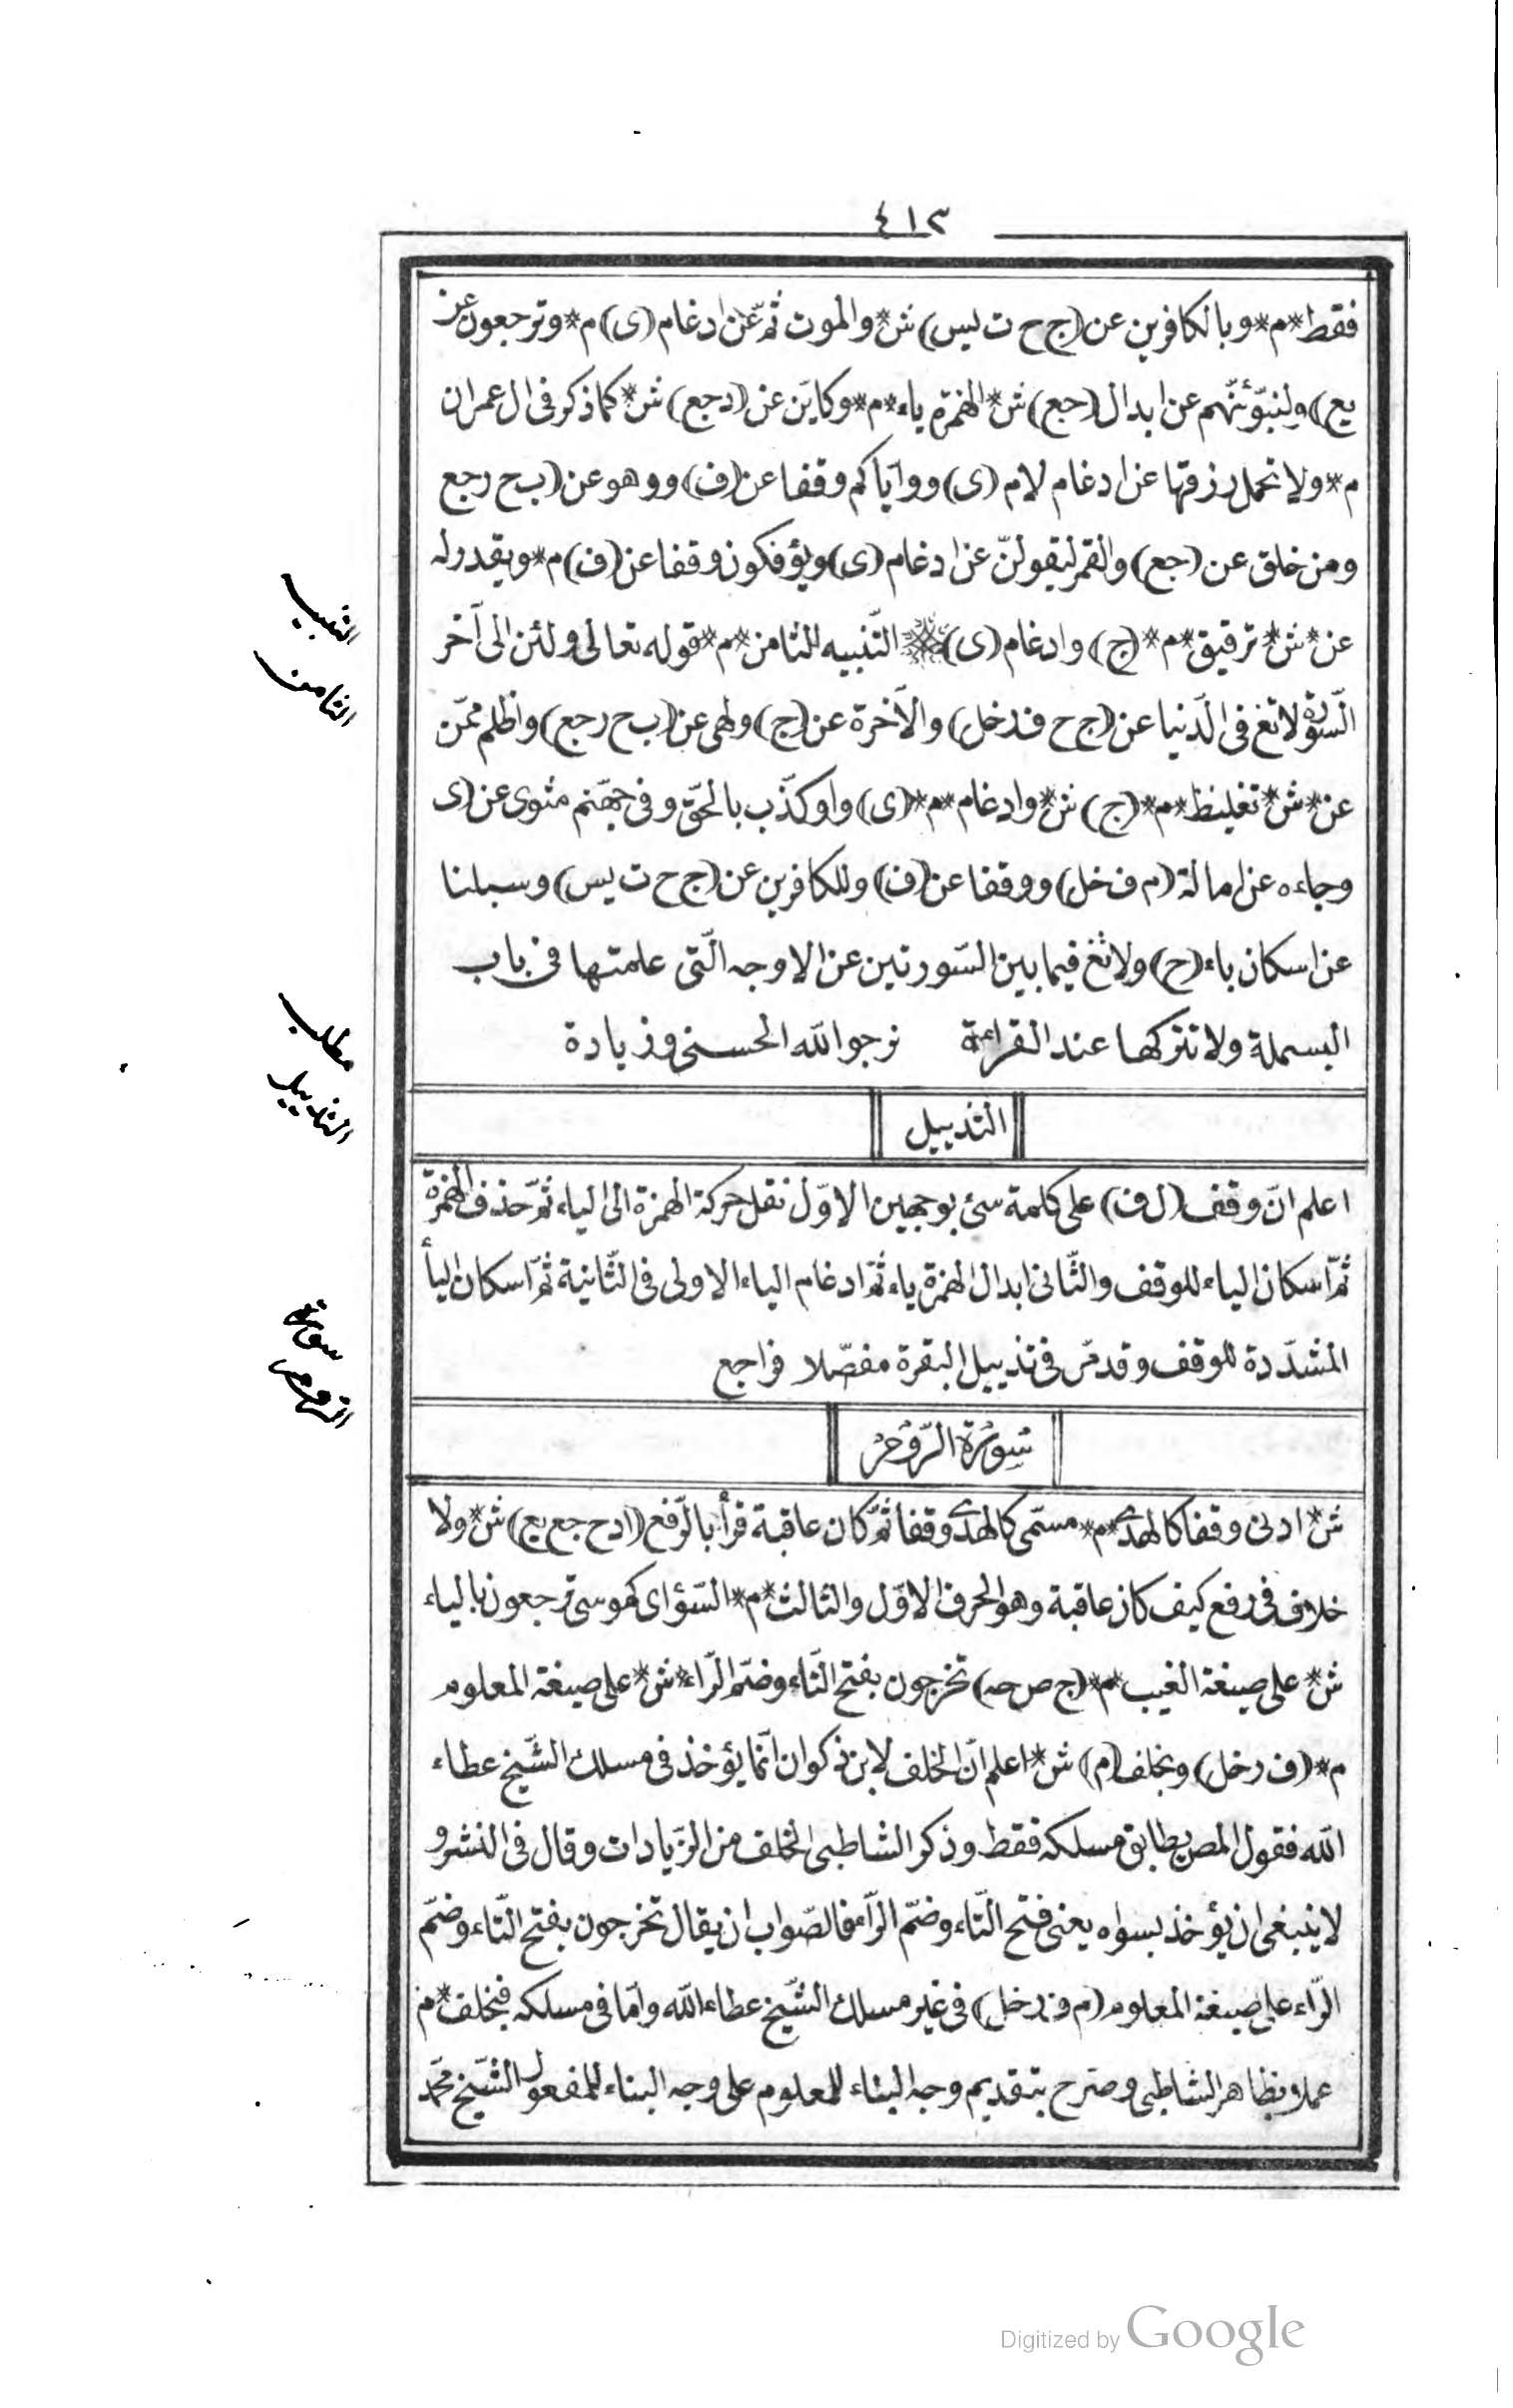 ٤١٣
فقط*م*وبالكافرين عن (ج ح ت يس) ش*والموت ثمّ عن ادغام (ى) م*وترجعون عن
يع) ولنبوّئنّهم عن ابدال (جع) ش*الهمزة ياء*م*وكاين عن (دجع) ش*كما ذكر فى ال عمران
م*ولا تحمل رزقها عن ادغام لام (ى) ووايّاكم وقفا عن (ف) ووهو عن (ب ح رجع
ومن خلق عن (جع) والقمر ليقولنّ عن ادغام (ى) ويؤفكون وقفا عن (ف) م*ويقدر له
عن*ش*ترقيق*م*(ج) وادغام (ى) التّنبيه الثامن*م*قوله تعالى ولئن الى آخر
السّورة لا تغ فى الدّنيا عن (ج ح ف رخل) والآخرة عن (ج) ولهى عن (ب ح رجع) واظلم ممّن
عن*ش*تغليظ*م*(ج) ش*وادغام*م*(ى) واو كذّب بالحقّ وفى جهّنم مثوى عن (ى
وجاءه عن امالة (م ف خل) ووقفا عن (ف) وللكافرين عن (ج ح ت يس) وسبلنا
عن اسكان باء (ح) ولا تغ فيما بين السّورتين عن الاوجه الّتى علمتها فى باب
البسملة ولا تتركها عند القراءة نرجو الله الحسنى وزيادة
التذييل
اعلم انّ وقف (ل ف) على كلمة سئ بوجهين الاوّل نقل حركة الهمزة الى الياء ثمّ حذف الهمزة
ثمّ اسكان الياء للوقف والثّانى ابدال الهمزة ياء ثمّ ادغام الياء الاولى فى الثّانية ثمّ اسكان اليأ
المشدّدة للوقف وقد مرّ فى تذييل البقرة مفصّلا فراجع
سورة الرّوم
ش*ادنى وقفا كالهدى*م*مسمّى كالهدى وقفا ثمّ كان عاقبة قرأ بالرّفع (ادح جع يع) ش*ولا
خلاف فى رفع كيف كان عاقبة وهو الحرف الاوّل والثالث*م*السّؤاى كموسى ترجعون بالياء
ش*على صيغة الغيب*م*(ج ص حه) تخرجون بفتح التّاء وضمّ الرّاء*ش*على صيغة المعلوم
م*(ف رخل) وبخلف (م) ش*اعلم انّ الخلف لابن ذكوان انّما يؤخذ فى مسلك الشّيخ عطاء
الله فقول المص يطابق مسلكه فقط وذكر الشاطبى الخلف من الزّيادات وقال فى النشر و
لا ينبغى ان يؤخذ بسواه يعنى فتح التّاء وضمّ الرّاء فالصّواب ان يقال تخرجون بفتح التّاء وضمّ
الرّاء على صيغة المعلوم (م ف رخل) فى غير مسلك الشّيخ عطاء الله وامّا فى مسلكه فبخلف*م
عملا بظاهر الشاطبى وصرح بتقديم وجه البناء للمعلوم على وجه البناء للمفعول الشّيخ محمّد
التنبيه
الثامن
مطلب
التذييل
سورة
الروم
Digitized by Google